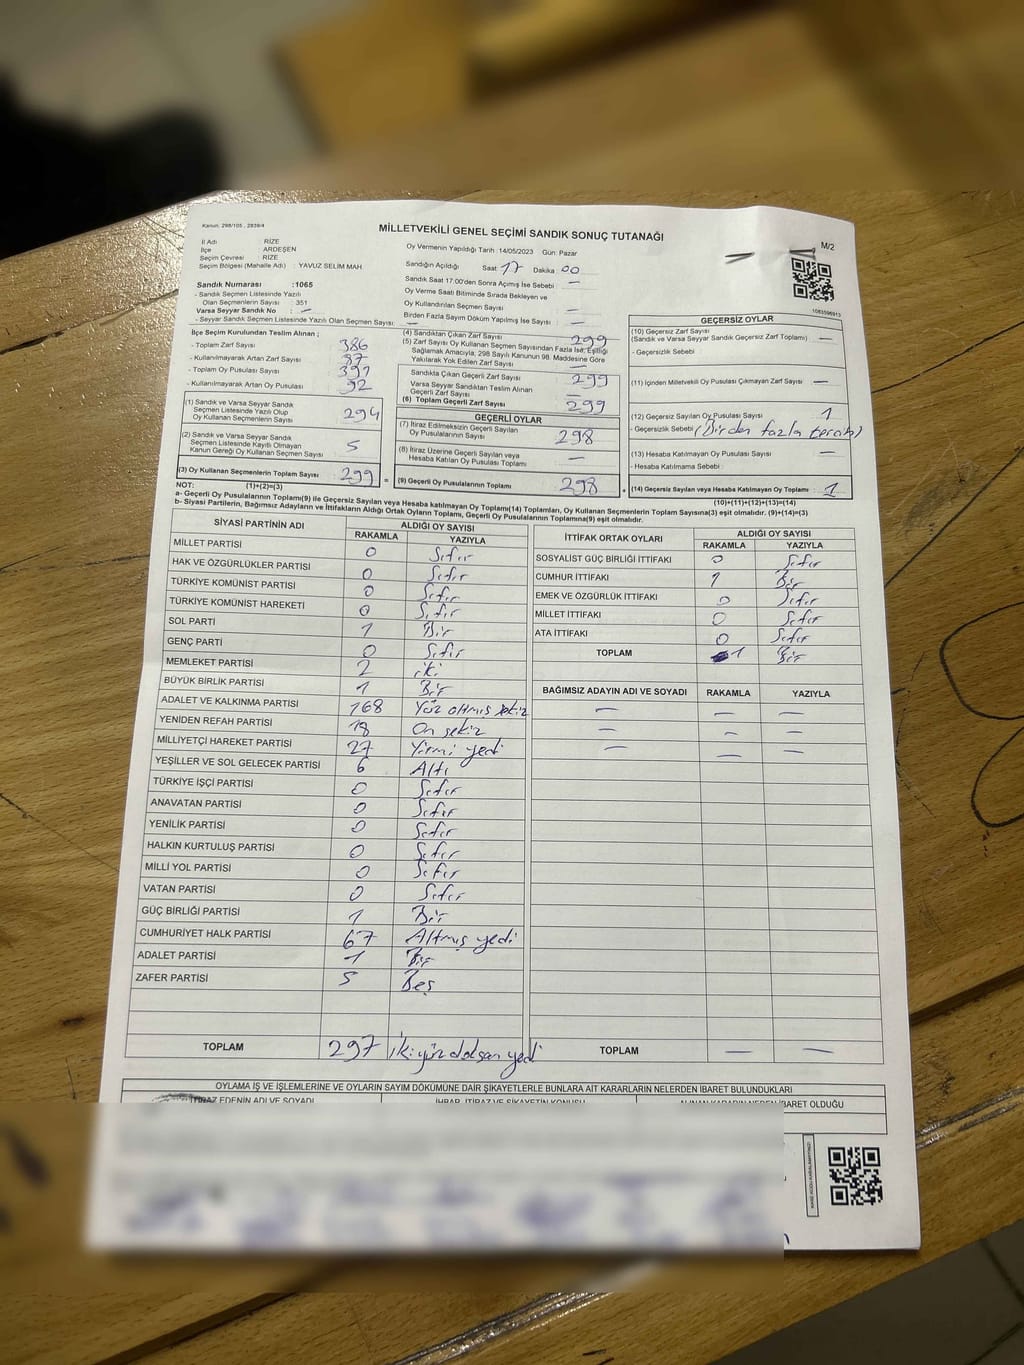 Kanun: 298/105 , 2839/4
MİLLETVEKİLİ GENEL SEÇİMİ SANDIK SONUÇ TUTANAĞI
M/2
İl Adı RİZE
İlçe ARDEŞEN
Seçim Çevresi RİZE
Seçim Bölgesi (Mahalle Adı) : YAVUZ SELİM MAH
Oy Vermenin Yapıldığı Tarih :14/05/2023 Gün: Pazar
Sandığın Açıldığı Saat 17 Dakika 00
Sandık Saat 17.00'den Sonra Açılmış İse Sebebi : —
Oy Verme Saati Bitiminde Sırada Bekleyen ve
Oy Kullandırılan Seçmen Sayısı —
Birden Fazla Sayım Döküm Yapılmış İse Sayısı : —
Sandık Numarası :1065
- Sandık Seçmen Listesinde Yazılı
Olan Seçmenlerin Sayısı : 351
Varsa Seyyar Sandık No : —
- Seyyar Sandık Seçmen Listesinde Yazılı Olan Seçmen Sayısı: —
İlçe Seçim Kurulundan Teslim Alınan ;
- Toplam Zarf Sayısı 386
- Kullanılmayarak Artan Zarf Sayısı 87
- Toplam Oy Pusulası Sayısı 391
- Kullanılmayarak Artan Oy Pusulası 92
(1) Sandık ve Varsa Seyyar Sandık
Seçmen Listesinde Yazılı Olup
Oy Kullanan Seçmenlerin Sayısı 294
(2) Sandık ve Varsa Seyyar Sandık
Seçmen Listesinde Kayıtlı Olmayan
Kanun Gereği Oy Kullanan Seçmen Sayısı 5
(3) Oy Kullanan Seçmenlerin Toplam Sayısı 299 =
(4) Sandıktan Çıkan Zarf Sayısı 299
(5) Zarf Sayısı Oy Kullanan Seçmen Sayısından Fazla İse, Eşitliği
Sağlamak Amacıyla, 298 Sayılı Kanunun 98. Maddesine Göre
Yakılarak Yok Edilen Zarf Sayısı —
Sandıkta Çıkan Geçerli Zarf Sayısı 299
Varsa Seyyar Sandıktan Teslim Alınan
Geçerli Zarf Sayısı —
(6) Toplam Geçerli Zarf Sayısı 299
GEÇERLİ OYLAR
(7) İtiraz Edilmeksizin Geçerli Sayılan
Oy Pusulalarının Sayısı 298
(8) İtiraz Üzerine Geçerli Sayılan veya
Hesaba Katılan Oy Pusulası Toplamı —
(9) Geçerli Oy Pusulalarının Toplamı 298 +
1083596913
GEÇERSİZ OYLAR
(10) Geçersiz Zarf Sayısı
(Sandık ve Varsa Seyyar Sandık Geçersiz Zarf Toplamı) —
- Geçersizlik Sebebi
(11) İçinden Milletvekili Oy Pusulası Çıkmayan Zarf Sayısı —
(12) Geçersiz Sayılan Oy Pusulası Sayısı 1
- Geçersizlik Sebebi (Birden fazla tercih)
(13) Hesaba Katılmayan Oy Pusulası Sayısı —
- Hesaba Katılmama Sebebi
(14) Geçersiz Sayılan veya Hesaba Katılmayan Oy Toplamı 1
NOT: (1)+(2)=(3) (10)+(11)+(12)+(13)=(14)
a- Geçerli Oy Pusulalarının Toplamı(9) ile Geçersiz Sayılan veya Hesaba katılmayan Oy Toplamı(14) Toplamları, Oy Kullanan Seçmenlerin Toplam Sayısına(3) eşit olmalıdır. (9)+(14)=(3)
b- Siyasi Partilerin, Bağımsız Adayların ve İttifakların Aldığı Ortak Oyların Toplamı, Geçerli Oy Pusulalarının Toplamına(9) eşit olmalıdır.
SİYASİ PARTİNİN ADI ALDIĞI OY SAYISI
RAKAMLA YAZIYLA
MİLLET PARTİSİ 0 Sıfır
HAK VE ÖZGÜRLÜKLER PARTİSİ 0 Sıfır
TÜRKİYE KOMÜNİST PARTİSİ 0 Sıfır
TÜRKİYE KOMÜNİST HAREKETİ 0 Sıfır
SOL PARTİ 1 Bir
GENÇ PARTİ 0 Sıfır
MEMLEKET PARTİSİ 2 iki
BÜYÜK BİRLİK PARTİSİ 1 Bir
ADALET VE KALKINMA PARTİSİ 168 Yüz altmış sekiz
YENİDEN REFAH PARTİSİ 18 On sekiz
MİLLİYETÇİ HAREKET PARTİSİ 27 Yirmi yedi
YEŞİLLER VE SOL GELECEK PARTİSİ 6 Altı
TÜRKİYE İŞÇİ PARTİSİ 0 Sıfır
ANAVATAN PARTİSİ 0 Sıfır
YENİLİK PARTİSİ 0 Sıfır
HALKIN KURTULUŞ PARTİSİ 0 Sıfır
MİLLİ YOL PARTİSİ 0 Sıfır
VATAN PARTİSİ 0 Sıfır
GÜÇ BİRLİĞİ PARTİSİ 1 Bir
CUMHURİYET HALK PARTİSİ 67 Altmış yedi
ADALET PARTİSİ 1 Bir
ZAFER PARTİSİ 5 Beş
TOPLAM 297 İki yüz doksan yedi
İTTİFAK ORTAK OYLARI ALDIĞI OY SAYISI
RAKAMLA YAZIYLA
SOSYALİST GÜÇ BİRLİĞİ İTTİFAKI 0 Sıfır
CUMHUR İTTİFAKI 1 Bir
EMEK VE ÖZGÜRLÜK İTTİFAKI 0 Sıfır
MİLLET İTTİFAKI 0 Sıfır
ATA İTTİFAKI 0 Sıfır
TOPLAM 1 Bir
BAĞIMSIZ ADAYIN ADI VE SOYADI RAKAMLA YAZIYLA
— — —
— — —
— — —
TOPLAM — —
OYLAMA İŞ VE İŞLEMLERİNE VE OYLARIN SAYIM DÖKÜMÜNE DAİR ŞİKAYETLERLE BUNLARA AİT KARARLARIN NELERDEN İBARET BULUNDUKLARI
İTİRAZ EDENİN ADI VE SOYADI İHBAR, İTİRAZ VE ŞİKAYETİN KONUSU ALINAN KARARIN NEDEN İBARET OLDUĞU